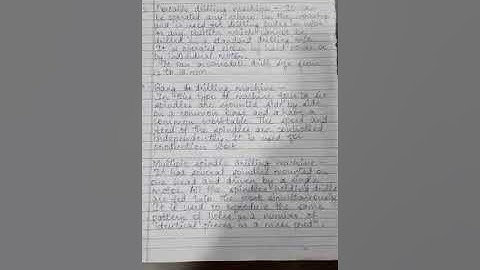 Portable drilling machine - It can
be operated any where by the
and is used for drilling holes in work
in any position which cannot be
drilled in a standard drilling m/c.
It is operated either by hand power or
by individual motor.
It can accomodate drill size from
to 12 mm.
Gang drilling machine -
In this type of machine four to six
spindles are mounted side by side
on a common base and a have a
common worktable. The speed and
feed of the spindles are controlled
independently. It is used for
production work.
Multiple spindle drilling machine -
It has several spindles mounted on
one head and driven by a single
motor. All the spindles holding drills
are fed into the work simultaneously.
It is used to reproduce the same
pattern of holes in a number of
identical pieces in a mass prod".